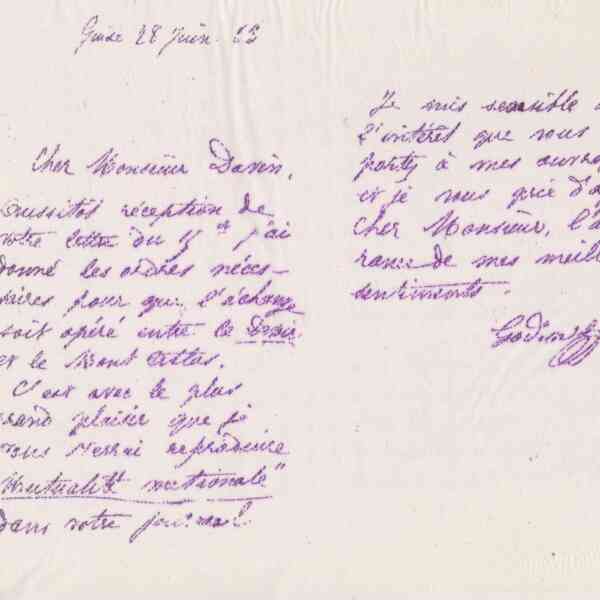 Guise 28 Juin 83
Cher Monsieur Davin,
aussitôt réception de
votre lettre du 15 ct j'ai
donné les ordres néces-
saires pour que l'échange
soit opéré entre le Devoir
et le Mont
C'est avec le plus
grand plaisir que je
vous verrai reproduire
Mutualité nationale"
dans votre journal.
Je suis sensible
l'intérêt que vous
portez à mes ouvrag
et je vous prie d'a
cher Monsieur, l'a
rance de mes meill
sentiments.
Godin